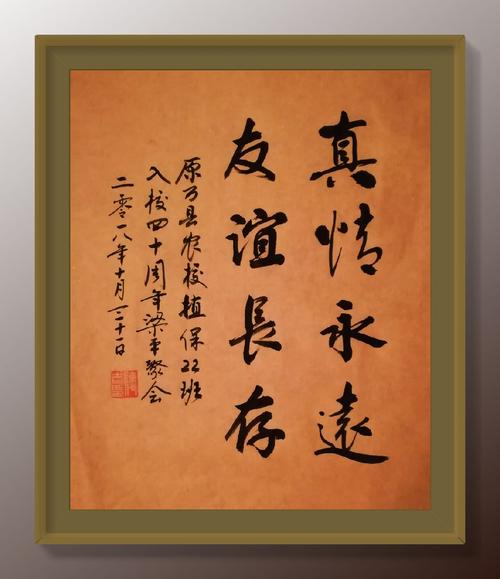 真情永遠
友誼長存
原万县农校植保22班
入校四十周年梁平聚会
二零一八年十月三十一日